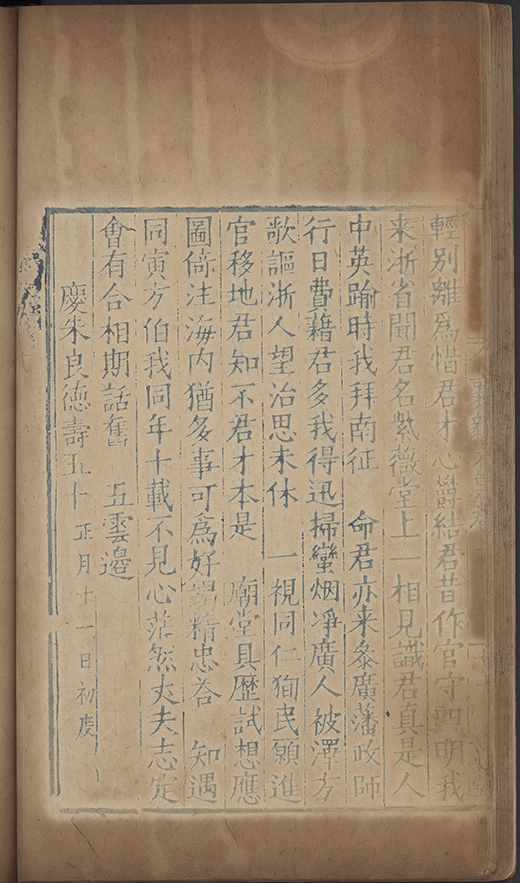 輕別離為惜君才心鬱結君昔作官守四明我
来浙省聞君名紫薇堂上一相見識君真是人
中英踰時我拜南征 命君亦来叅廣藩政師
行日費藉君多我得迅掃蠻烟凈廣人被澤方
歌謳浙人望治思未休 一視同仁狥民願進
官移地君知不君才本是 廟堂具歷試想應
圖倚注海内猶多事可為好竭精忠荅 知遇
同寅方伯我同年十載不見心茫然丈夫志定
會有合相期話舊 五雲邊
慶朱良德壽五十 正月十一日初度